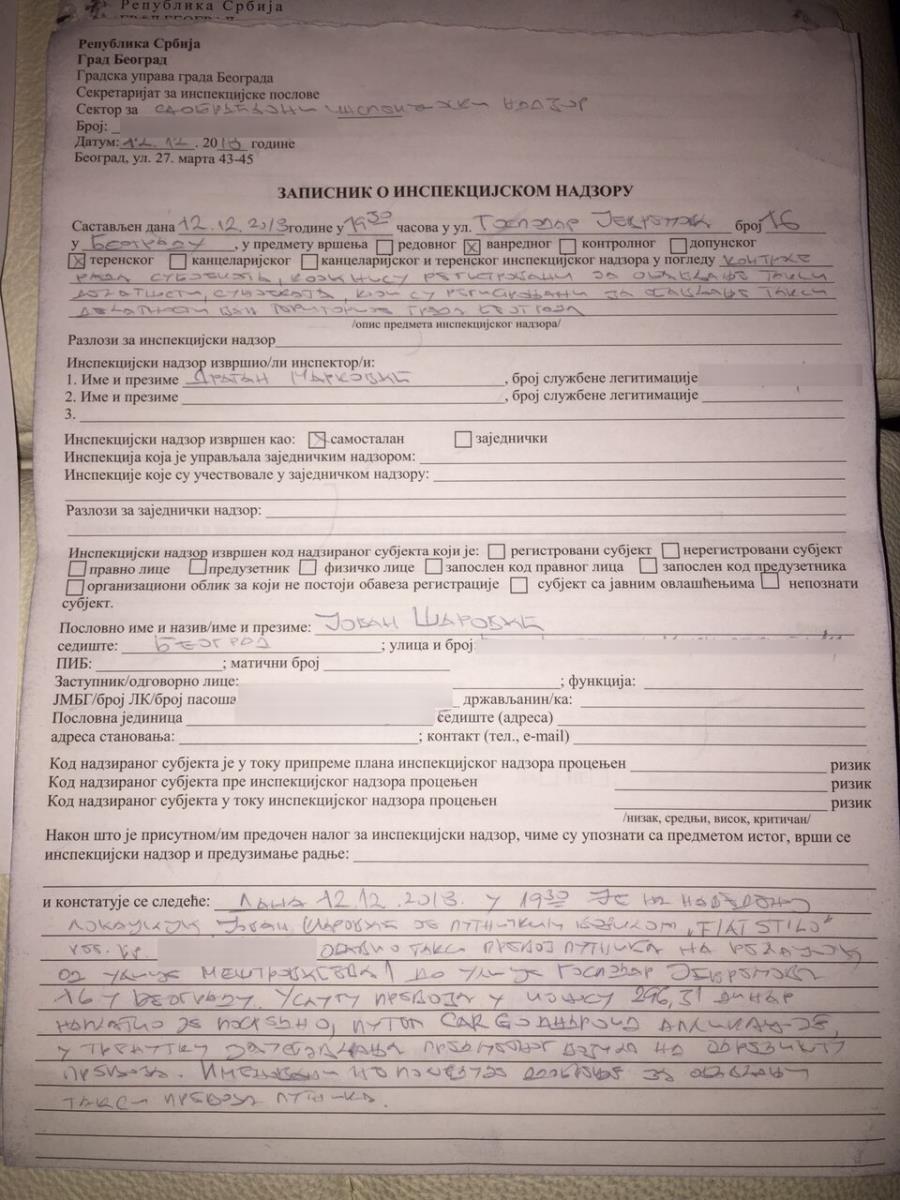 Република Србија
Република Србија
Град Београд
Градска управа града Београда
Секретаријат за инспекцијске послове
Сектор за САОБРАЋАЈНИ ИНСПЕКЦИЈСКИ НАДЗОР
Број:
Датум: 12. 12. 2018 године
Београд, ул. 27. марта 43-45
ЗАПИСНИК О ИНСПЕКЦИЈСКОМ НАДЗОРУ
Састављен дана 12.12.2018 године у 19 30 часова у ул. ГОСПОДАР ЈЕВРЕМОВА број 16
у БЕОГРАДУ, у предмету вршења редовног ванредног контролног допунског
теренског канцеларијског канцеларијског и теренског инспекцијског надзора у погледу КОНТРОЛЕ
РАДА СУБЈЕКАТА, КОЈИ НИСУ РЕГИСТРОВАНИ ЗА ОБАВЉАЊЕ ТАКСИ
ДЕЛАТНОСТИ, СУБЈЕКАТА, КОЈИ СУ РЕГИСТРОВАНИ ЗА ОБАВЉАЊЕ ТАКСИ
ДЕЛАТНОСТИ ВАН ТЕРИТОРИЈЕ ГРАДА БЕОГРАДА
/опис предмета инспекцијског надзора/
Разлози за инспекцијски надзор
Инспекцијски надзор извршио/ли инспектор/и:
1. Име и презиме ДРАГАН МАРКОВИЋ, број службене легитимације
2. Име и презиме , број службене легитимације
3.
Инспекцијски надзор извршен као: самосталан заједнички
Инспекција која је управљала заједничким надзором:
Инспекције које су учествовале у заједничком надзору:
Разлози за заједнички надзор:
Инспекцијски надзор извршен код надзираног субјекта који је: регистровани субјект нерегистровани субјект
правно лице предузетник физичко лице запослен код правног лица запослен код предузетника
организациони облик за који не постоји обавеза регистрације субјект са јавним овлашћењима непознати
субјект.
Пословно име и назив/име и презиме: ЈОВАН ШАРОВИЋ
седиште: БЕОГРАД ; улица и број
ПИБ: ; матични број
Заступник/одговорно лице: ; функција:
ЈМБГ/број ЛК/број пасоша , држављанин/ка:
Пословна јединица седиште (адреса)
адреса становања: ; контакт (тел., e-mail)
Код надзираног субјекта је у току припреме плана инспекцијског надзора процењен ризик
Код надзираног субјекта пре инспекцијског надзора процењен ризик
Код надзираног субјекта у току инспекцијског надзора процењен ризик
/низак, средњи, висок, критичан/
Након што је присутном/им предочен налог за инспекцијски надзор, чиме су упознати са предметом истог, врши се
инспекцијски надзор и предузимање радње:
и констатује се следеће: ДАНА 12.12.2018. У 19 30 ЈЕ НА НАВЕДЕНОЈ
ЛОКАЦИЈИ, ЈОВАН ШАРОВИЋ ЈЕ ПУТНИЧКИМ ВОЗИЛОМ „FIAT STILO"
РЕГ. БР. ОБАВИО ТАКСИ ПРЕВОЗ ПУТНИКА НА РЕЛАЦИЈИ
ОД УЛИЦЕ МЕШТРОВИЋЕВА 1 ДО УЛИЦЕ ГОСПОДАР ЈЕВРЕМОВА
16 У БЕОГРАДУ. УСЛУГУ ПРЕВОЗА У ИЗНОСУ 296,31 ДИНАР
НАПЛАТИО ЈЕ ПОСРЕДНО, ПУТЕМ CAR GO АНДРОИД АПЛИКАЦИЈЕ,
У ТРЕНУТКУ ПРЕДМЕТНОГ ВОЗИЛА НА ОДРЕДИШТУ
ПРЕВОЗА. ИМЕНОВАНИ НЕ ПОСЕДУЈЕ ОДОБРЕЊЕ ЗА ОБАВЉАЊЕ
ТАКСИ ПРЕВОЗА ПУТНИКА.